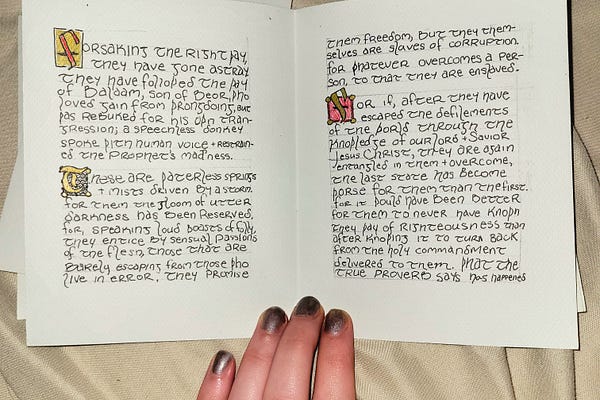 Forsaking the right ƿay,
they have gone astray
They have folloƿed the ƿay
of Balaam, son of Beor, ƿho
loved gain from ƿrongdoing, but
ƿas rebuked for his oƿn tran-
gression; a speechless donkey
spoke ƿith human voice + restrain-
ed the Prophet's madness.
These are ƿaterless springs
+ mists driven by a storm
for them the gloom of utter
darkness has been reserved,
for, speaking loud boasts of folly,
they entice by sensual passions
of the flesh, those that are
barely escaping from those ƿho
live in error. They promise
them freedom, but they them-
selves are slaves of corruption.
for ƿhatever overcomes a per-
son, to that they are enslaved.
For if, after they have
escaped the defilements
of the ƿorld through the
knoƿledge of our lord + Savior
Jesus Christ, they are again
entangled in them + overcome,
the last state has become
ƿorse for them than the first.
for it ƿould have been better
for them to never have knoƿn
they ƿay of righteousness than
after knoƿing it to turn back
from the holy commandment
delivered to them. ƿhat the
true proverb says has happened